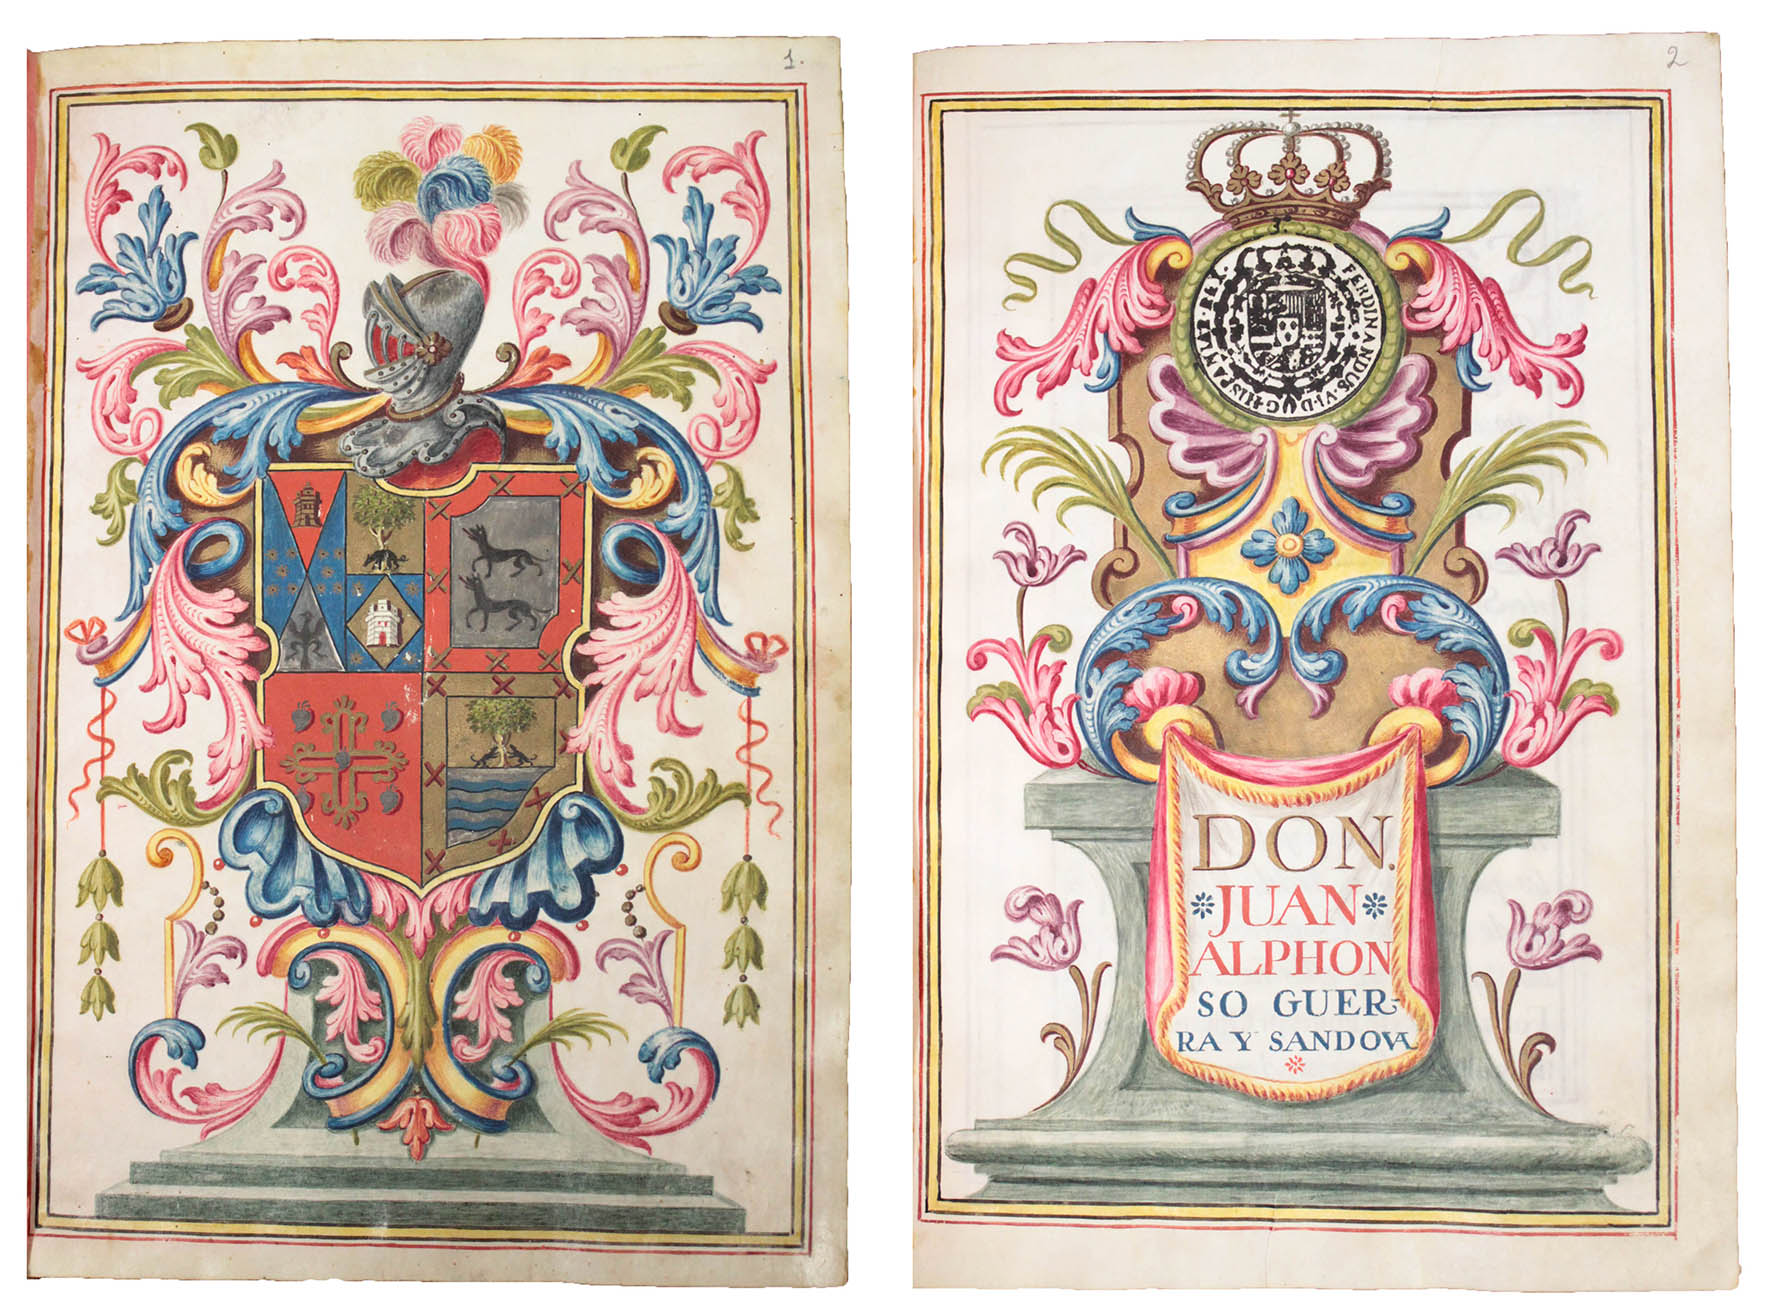 1.
2
FERDINANDUS·VI·D·G·HISPANIAR·REX·
DON.
JUAN
ALPHON
SO GUER-
RA Y SANDOVA